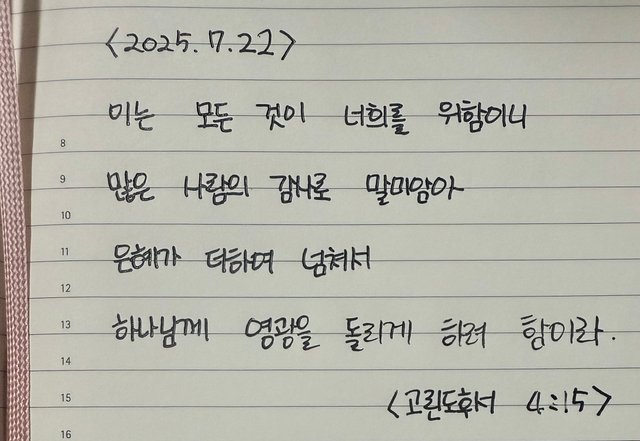 <2025.7.22>
이는 모든 것이 너희를 위함이니
8
9 많은 사람의 감사로 말미암아
10
11 은혜가 더하여 넘쳐서
12
13 하나님께 영광을 돌리게 하려 함이라.
14
15 <고린도후서 4:15>
16